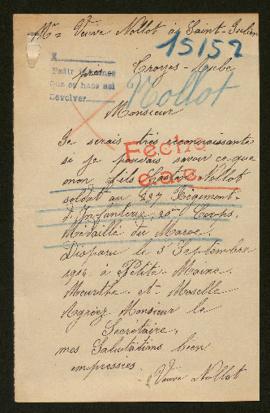 Mme Veuve Nollot à Saint-Julien
15152
Troyes - Aube
Nollot
Monsieur
Je serais très reconnaissante
si je pouvais savoir ce que
mon fils Nollot
soldat au Régiment
d'Infanterie 20me Corps.
Médaillé du Maroc.
Disparu le 5 Septembre
1914 à Petite Maixe
Meurthe et Moselle
Agréez Monsieur le
Secrétaire,
mes Salutations bien
empressées
Veuve Nollot
Fiche